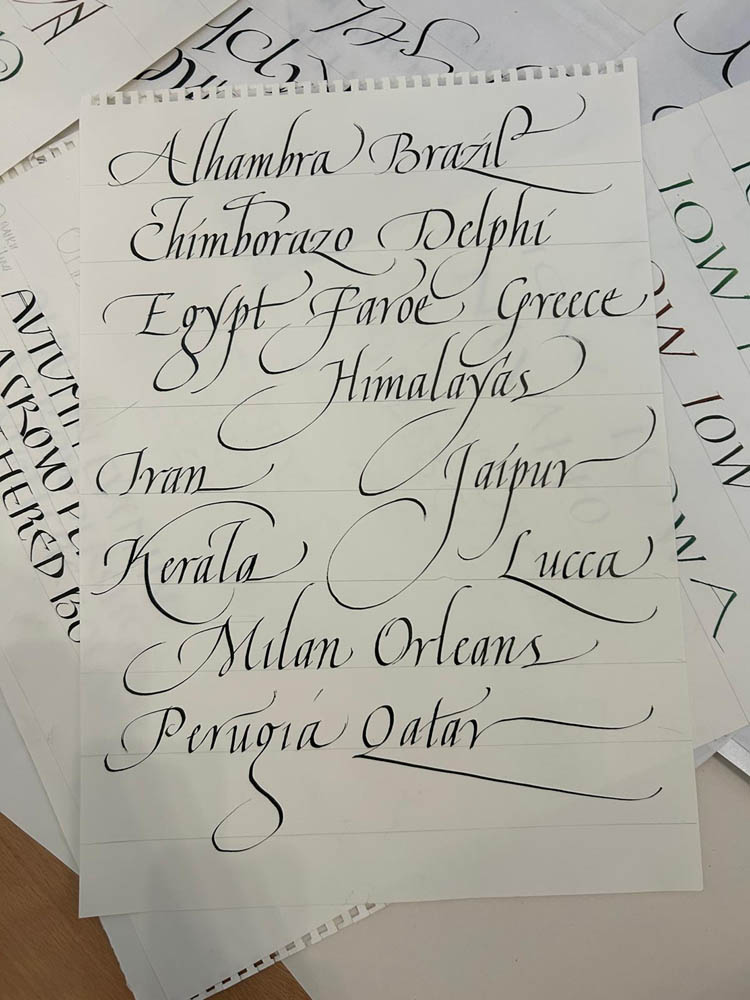 Alhambra Brazil
Chimborazo Delphi
Egypt Faroe Greece
Himalayas
Iran Jaipur
Kerala Lucca
Milan Orleans
Perugia Qatar
IOW
IOW
IOWA